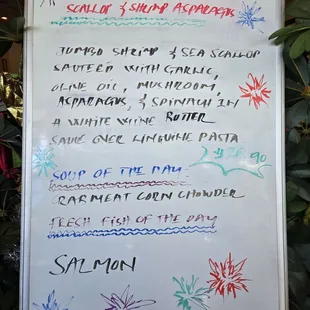 SCALLOP & SHRIMP ASPARAGUS
JUMBO SHRIMP & SEA SCALLOP
SAUTEED WITH GARLIC,
OLIVE OIL, MUSHROOM,
ASPARAGUS, & SPINACH IN
A WHITE WINE BUTTER
SAUCE OVER LINGUINE PASTA
SOUP OF THE DAY
CRABMEAT CORN CHOWDER
FRESH FISH OF THE DAY
SALMON